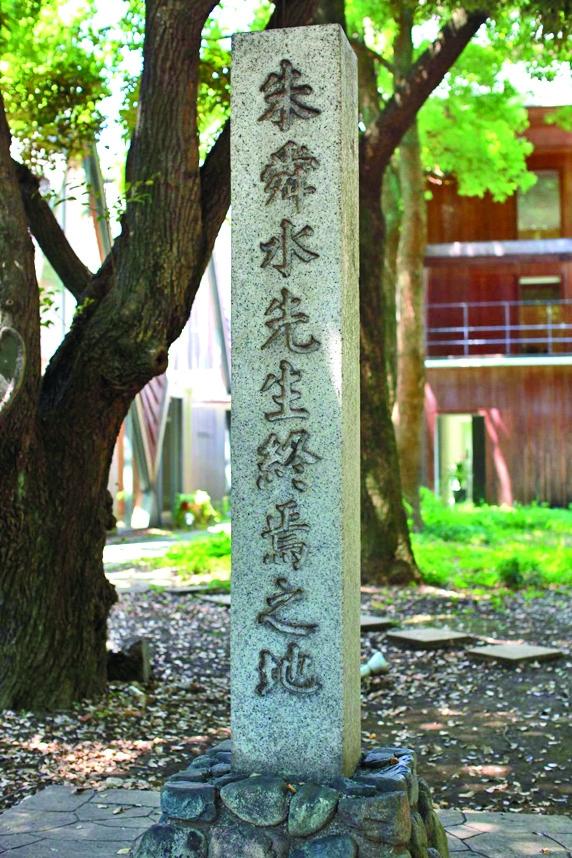 朱舜水先生終焉之地